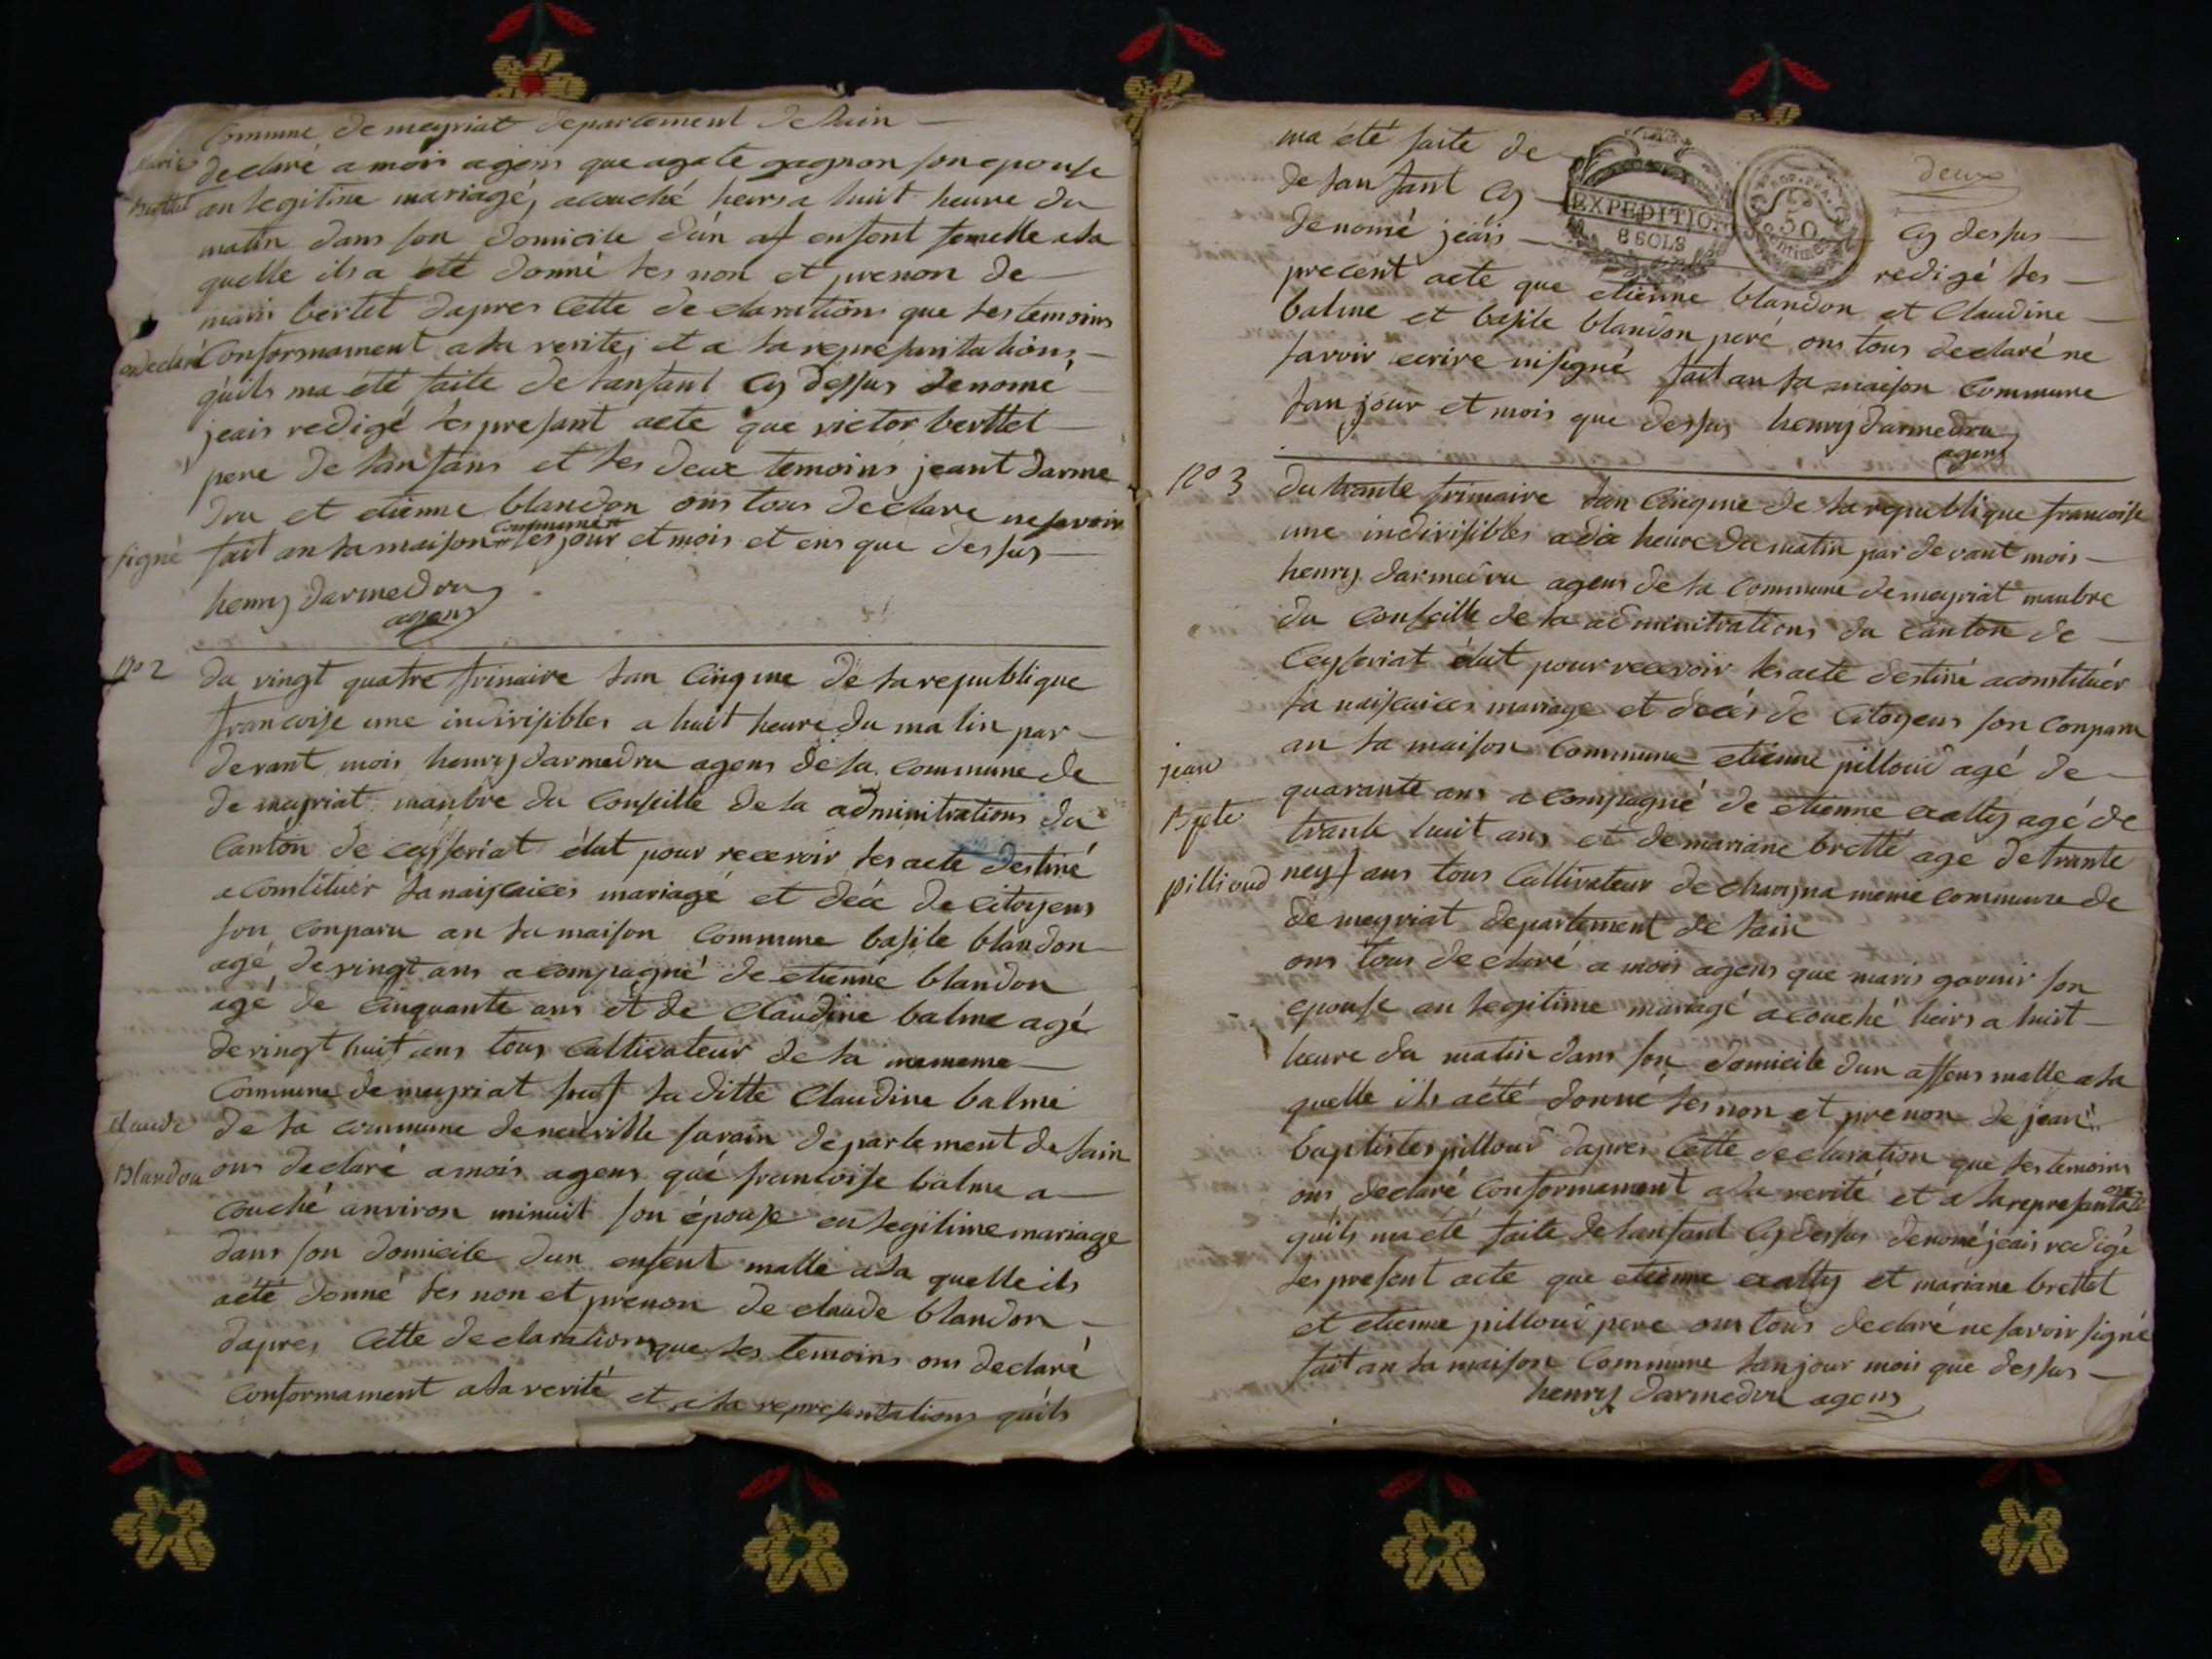 Commune de meyriat departement de lain
Marie
declaré a mois agens que agate gagnon son epouse
Bertlet
an legitime mariagé, acouché heirs a huit heure du
matin dans son domicile d'ún af enfent femelle ala
quelle ils a été donné les non et prenon de
marie bertlet dapres cette declarations que les temoins
on declaré
Conformament a la verité, et a la representations
quils ma été faite de lanfant Cy dessus denomé
jeais redigé les presant acte que victor berttet
pere de lanfans et les deux temoins jeant darme
dru et etienne blandon ons tous declare ne savoir
signé
fait an la maison commune les jour et mois et ens que dessus
henry darmedru
agens
No 2
du vingt quatre frimaire lan Cinqme de la republique
francoise une indivisibles a huit heure du matin par
devant mois henry darmedru agens de la commune de
de meyriat manbre du Conseille de la adminitrations du
Canton de ceyseriat élut pour recevoir les acte destiné
a constituér la naiscaices mariagé et déce de citoyens
son conparu an la maison commune basile blandon
agé de vingt ans acompagné de etienne blandon
agé de cinquante ans et de claudine balme agé
de vingt huit ans tous cultivateur de la mememe
Commune de meyriat sauf la ditte Claudine balme
Claude
de la commune de neuville surain departement de lain
Blandon
ons declaré a mois agens qué francoise balme a
couché anviron minuit son épouse en legitime mariage
dans son domicile dun enfent malle ala quelle ils
aété donné les non et prénon de claude blandon
dapres Cette declarations que les temoins ons declaré
Conformament ala verité et a la representations quils
deux
ma été faite de
de lanfant Cy
Cy dessus
EXPEDITION
8 SOLS
50
centimes
denomé jeáis
redigé les
precent acte que etienne blandon et Claudine
balme et basile blandon peré ons tous declaré ne
savoir ecrire nisigné fait an la maison Commune
lan jour et mois que dessus henry darmedru
agens
No 3
du trante frimaire lan Cinqme de la republique francoise
une indivisibles a dix heure du matin par devant mois
henry darmedru agens de la Commune de meyriat manbre
du Conseille de la adminitrations du canton de
Ceyseriat élut pour recevoir les acte destiné aconstituér
la naiscaices mariage et decés de Citoyens son Conparu
an la maison Commune etienne pilloud agé de
jean
quarante ans acompagné de etienne exalty agé de
Bpte
trante huit ans et de mariane bretté age de trante
pillioud
neuf ans tous Cultivateur de chargna meme commune de
de meyriat departement de lain
ons tous declaré a mois agens que maris gornir son
epouse an legitime mariagé acouché heirs a huit
heure du matin dans son domicile dun affens malle ala
quelle ils aété donné les non et prenon de jean
baptistes pilloud dapres Cette declaration que les temoins
ons declaré Conformament ala verité et a la representations
quils ma été faite de lanfant Cy dessus denomé jeais redigé
les present acte que etienne exalty et mariane brettet
et etienne pilloud pere ons tous declaré ne savoir signé
fait an la maison Commune lan jour mois que dessus
henry darmedru agens